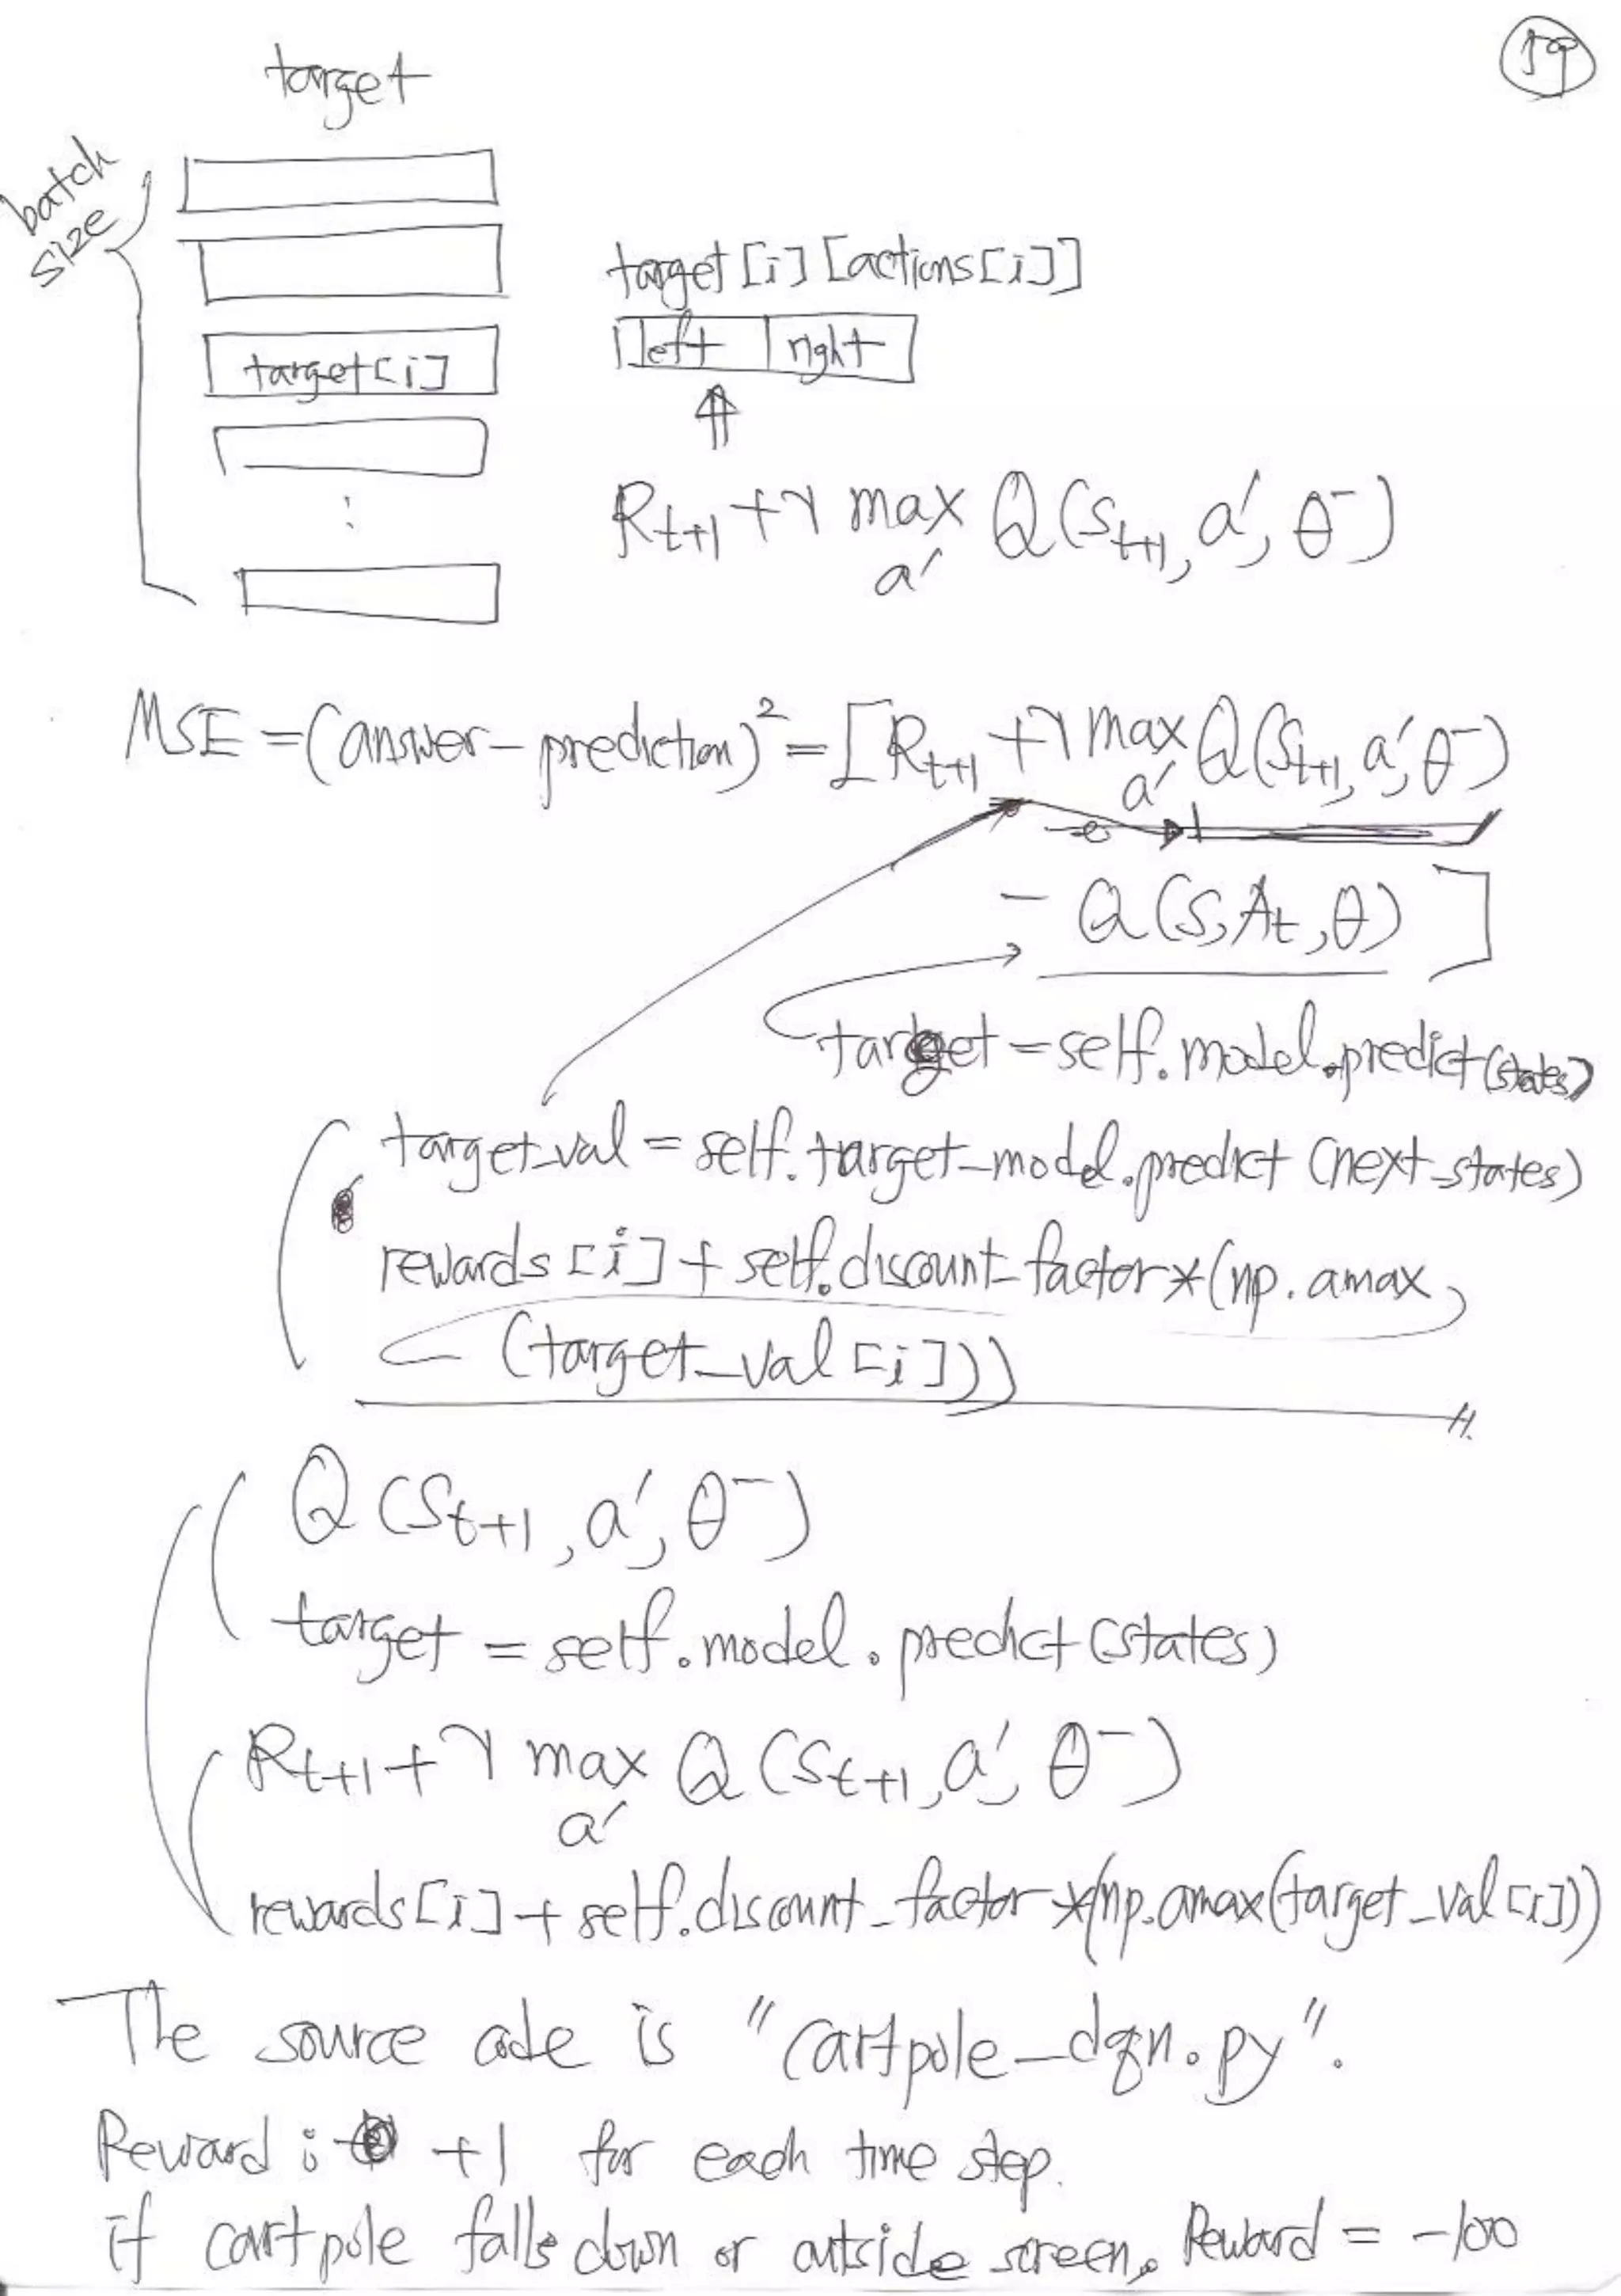 59
target
batch
size
target[i][actions[i]]
target[i]
left | right
⋮
R_{t+1} + γ max_{a'} Q(S_{t+1}, a', θ⁻)
MSE = (answer - prediction)² = [R_{t+1} + γ max_{a'} Q(S_{t+1}, a', θ⁻)
- Q(S, A_t, θ)]
target = self.model.predict(states)
target_val = self.target_model.predict(next_states)
rewards[i] + self.discount_factor*(np.amax
(target_val[i]))
Q(S_{t+1}, a', θ⁻)
target = self.model.predict(states)
R_{t+1} + γ max_{a'} Q(S_{t+1}, a', θ⁻)
rewards[i] + self.discount_factor*(np.amax(target_val[i]))
The source code is "cartpole_dqn.py".
Reward : +1 for each time step.
if cartpole falls down or outside screen, Reward = -100